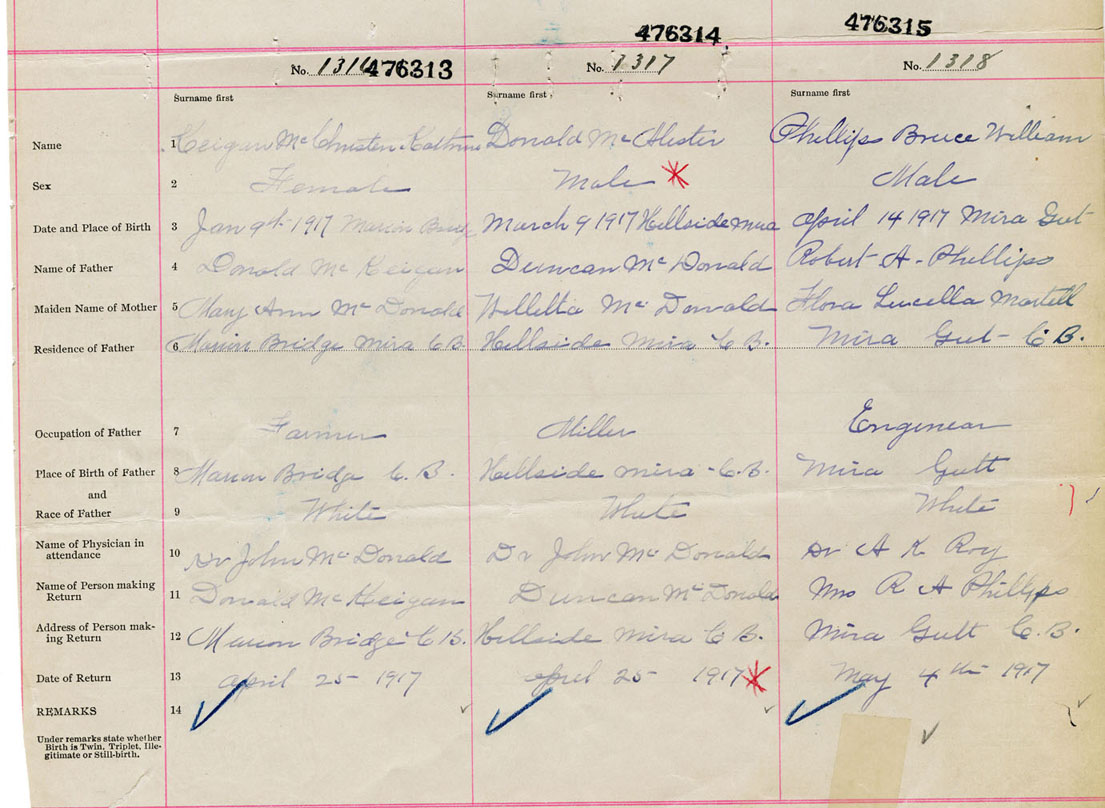 476314 476315
No. 1316 476313 No. 1317 No. 1318
Surname first Surname first Surname first
Name 1 Keigan Mc Christen Kathrine Donald Mc Alester Phillips Bruce William
Sex 2 Female Male Male
Date and Place of Birth 3 Jan 9th 1917 Marion Bridge March 9 1917 Hillside Mira April 14 1917 Mira Gut
Name of Father 4 Donald Mc Keigan Duncan Mc Donald Robert A - Phillips
Maiden Name of Mother 5 Mary Ann Mc Donald Willetta Mc Donald Flora Lucella Martell
Residence of Father 6 Marion Bridge Mira C B. Hillside Mira C B. Mira Gut - C B.
Occupation of Father 7 Farmer Miller Enginear
Place of Birth of Father 8 Marion Bridge C. B. Hillside Mira - C. B. Mira Gutt
and
Race of Father 9 White White White
Name of Physician in
attendance 10 Dr John Mc Donald Dr John Mc Donald Dr A K Roy
Name of Person making
Return 11 Donald Mc Keigan Duncan Mc Donald Mrs R A Phillips
Address of Person mak-
ing Return 12 Marion Bridge C B. Hillside Mira C B. Mira Gutt C. B.
Date of Return 13 April 25 - 1917 April 25 1917 May 4th 1917
REMARKS 14
Under remarks state whether
Birth is Twin, Triplet, Ille-
gitimate or Still-birth.